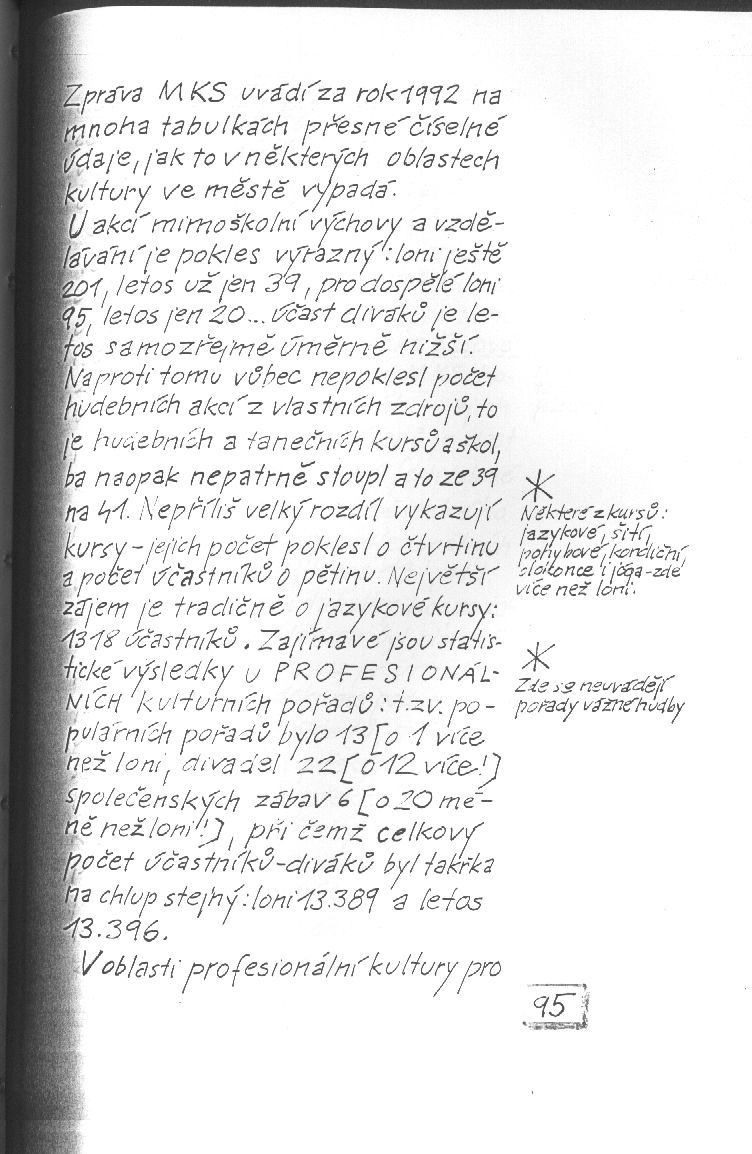 Zpráva MKS uvádí za rok 1992 na
mnoha tabulkách přesné číselné
údaje, jak to v některých oblastech
kultury ve městě vypadá.
U akcí mimoškolní výchovy a vzdě-
lávání je pokles výrazný: loni ještě
201, letos už jen 39, pro dospělé loni
95, letos jen 20... Účast diváků je le-
tos samozřejmě úměrně nižší.
Naproti tomu vůbec nepoklesl počet
hudebních akcí z vlastních zdrojů, to
je hudebních a tanečních kursů a škol,
ba naopak nepatrně stoupl a to ze 39
na 41. Nepříliš velký rozdíl vykazují
kursy - jejich počet poklesl o čtvrtinu
a počet účastníků o pětinu. Největší
zájem je tradičně o jazykové kursy:
1318 účastníků. Zajímavé jsou statis-
tické výsledky u PROFESIONÁL-
NÍCH kulturních pořadů: t.zv. po-
pulárních pořadů bylo 13 [o 1 více
než loni, divadel 22 [o 12 více!]
společenských zábav 6 [o 20 mé-
ně než loni!], při čemž celkový
počet účastníků-diváků byl takřka
na chlup stejný: loni 13.389 a letos
13.396.
V oblasti profesionální kultury pro
*
Některé z kursů:
jazykové, šití,
pohybové, kondiční
dokonce i jóga-zde
více než loni.
*
Zde se neuvádějí
pořady vážné hudby
95